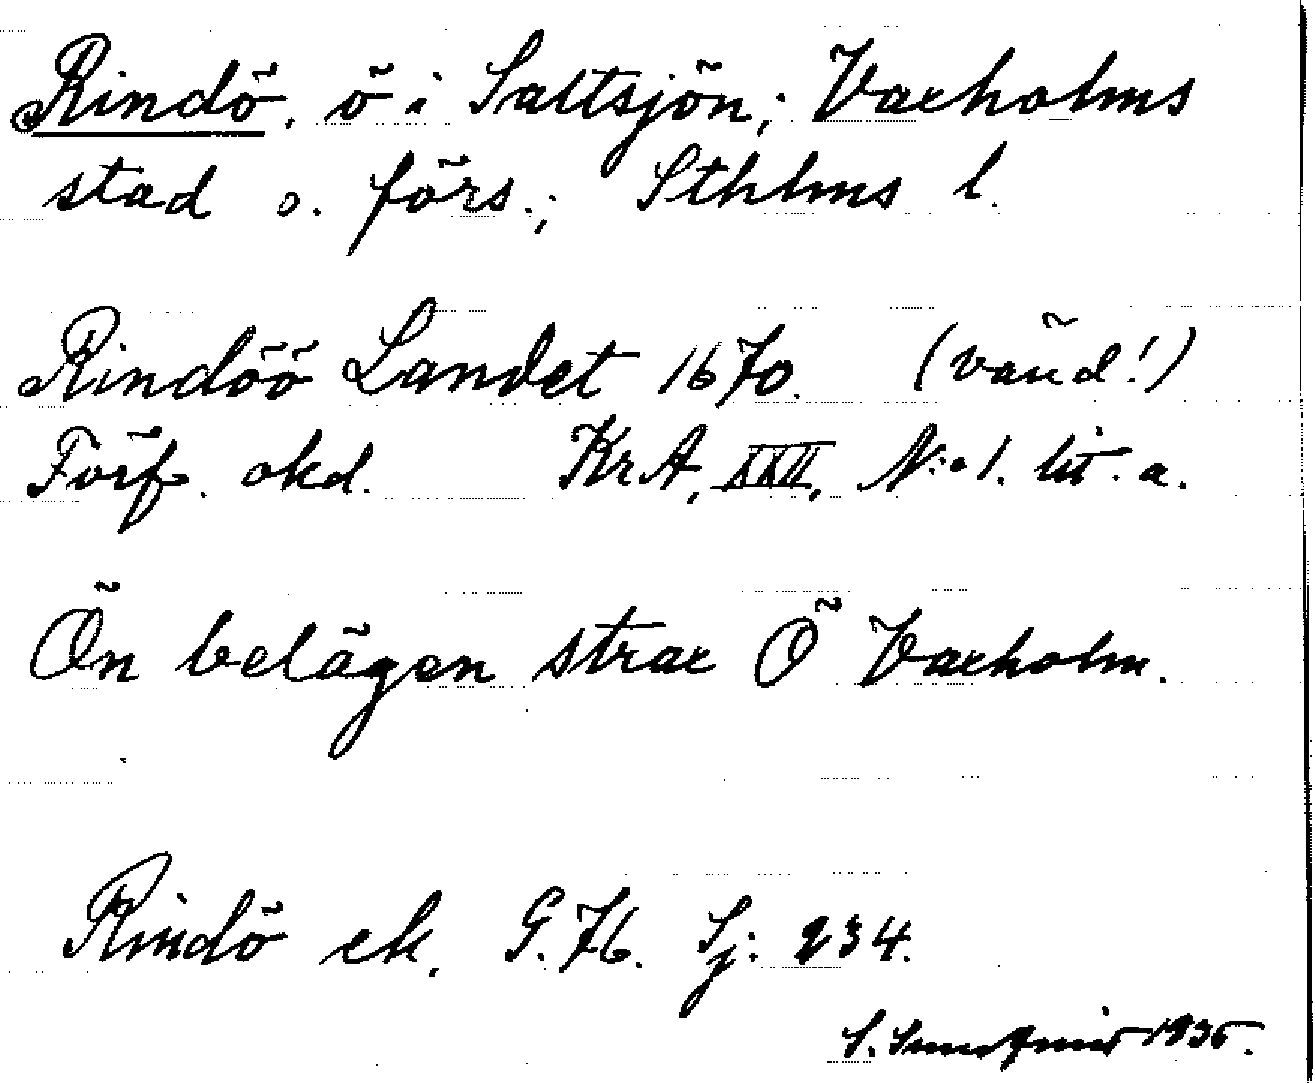 Rindö, ö i Saltsjön; Vaxholms
stad o. förs.; Sthlms l.
Rindöö Landet 1670. (vänd!)
Förf. okd. KrA, XXII, N:o 1. lit. a.
Ön belägen strax Ö Vaxholm.
Rindö ek. G.76. Sj: 234.
S. 1935.